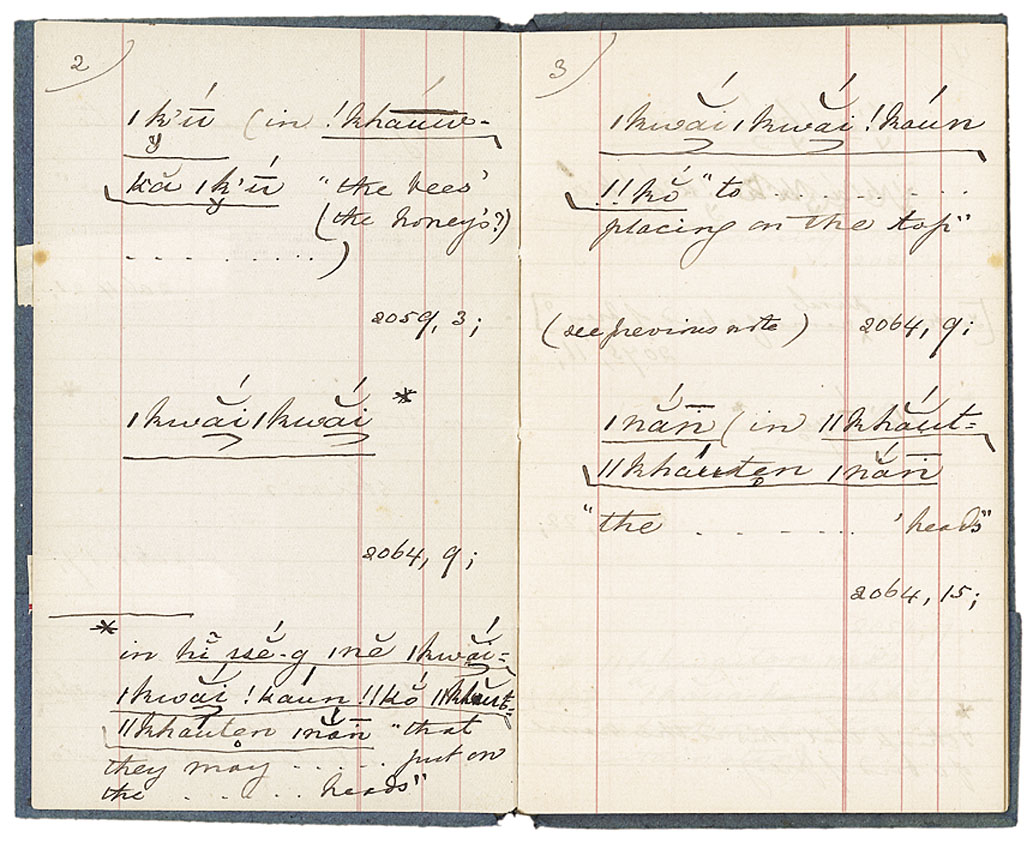 2)
ǀk'ū́ (in !kháuw-
kă ǀk'ū́ "the bees'
(the honey's?)
. . . . . . . . . . )
2059, 3;
ǀkwắi ǀkwắi *
2064, 9;
* in hĭ ssĕ́-g ǀnĕ ǀkwắi=
ǀkwắi !káun !ǁkŏ ǁkhăut=
ǁkháuten ǀnắn̄ "that
they may . . . . . put on
the . . . . . . heads"
3)
ǀkwắi ǀkwắi !káun
!ǁkŏ́ "to . . . . . .
placing on the top"
(see previous note) 2064, 9;
ǀnắn̄ (in ǁkhắut=
ǁkháuten ǀnắn̄
"the . . . . . . . ' heads"
2064, 15;